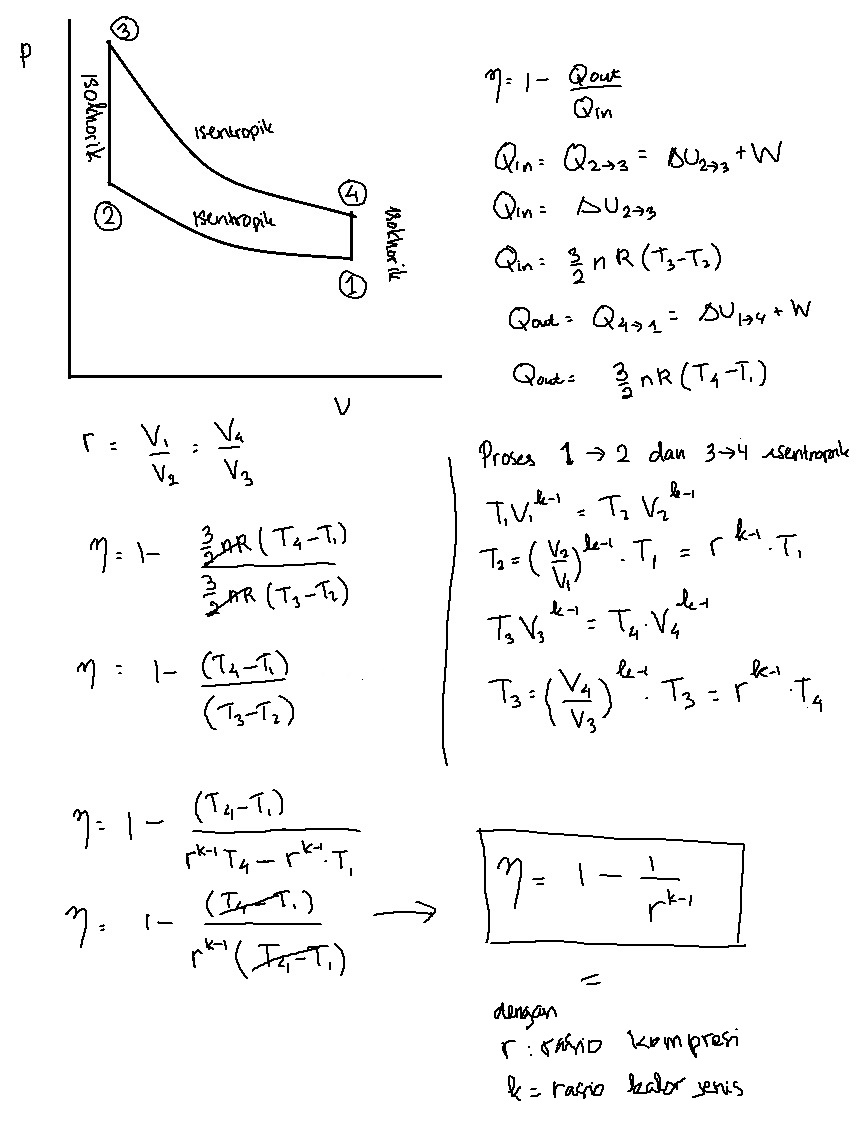 P
③
isokhorik
isentropik
②
isentropik
④
isokhorik
①
V
η = 1 - Qout/Qin
Qin = Q2→3 = ΔU2→3 + W
Qin = ΔU2→3
Qin = 3/2 n R (T3-T2)
Qout = Q4→1 = ΔU1→4 + W
Qout = 3/2 nR (T4-T1)
r = V1/V2 = V4/V3
η = 1 - 3/2 nR (T4-T1) / 3/2 nR (T3-T2)
η = 1 - (T4-T1)/(T3-T2)
Proses 1 → 2 dan 3→4 isentropik
T1V1^k-1 = T2 V2^k-1
T2 = (V2/V1)^k-1 · T1 = r^k-1 · T1
T3 V3^k-1 = T4 · V4^k-1
T3 = (V4/V3)^k-1 · T3 = r^k-1 · T4
η = 1 - (T4-T1) / r^k-1 T4 - r^k-1 · T1
η = 1 - (T4-T1) / r^k-1 (T4-T1) →
η = 1 - 1/r^k-1
=
dengan
r : rasio kompresi
k = rasio kalor jenis